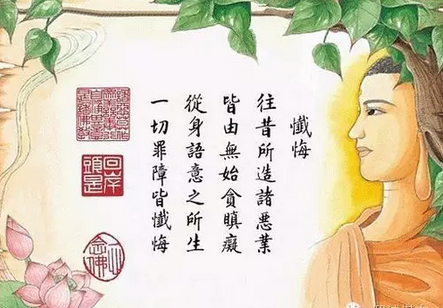 懺悔
往昔所造諸惡業
皆由無始貪瞋癡
從身語意之所生
一切罪障皆懺悔
回岸
頭是
一心
念佛